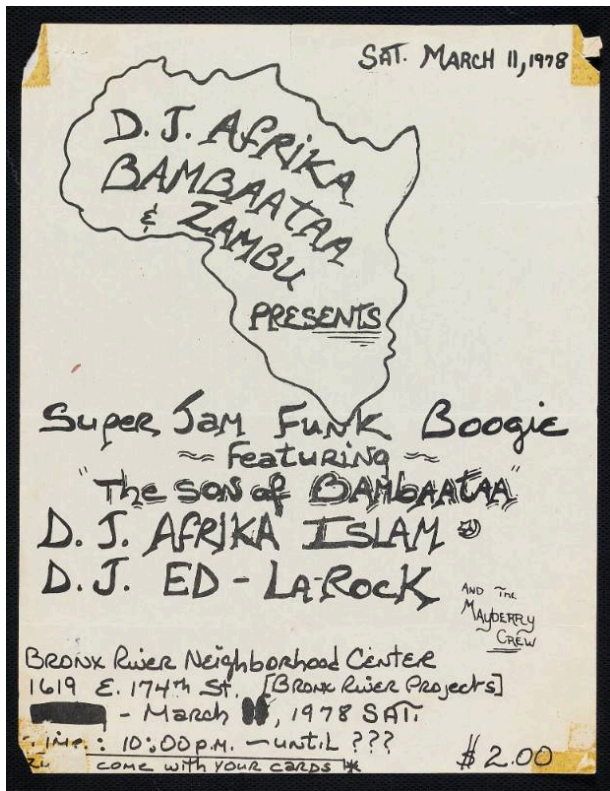 SAT. MARCH 11, 1978
D. J. AfRiKA
BAMBAATAA
& ZAMBU
PRESENTS
Super Jam Funk Boogie
≈ Featuring ≈
"The SON of BAMbAATAA"
D. J. AFRIKA ISLAM
D. J. ED - LA-ROCK
AND THE
MAYBERRY
CREW
BRONX River Neighborhood Center
1619 E. 174th St. [BRONX River Projects]
- March 11, 1978 SAT.
Time: 10:00 p.m. — until ???
COME WITH YOUR CARDS *
$2.00